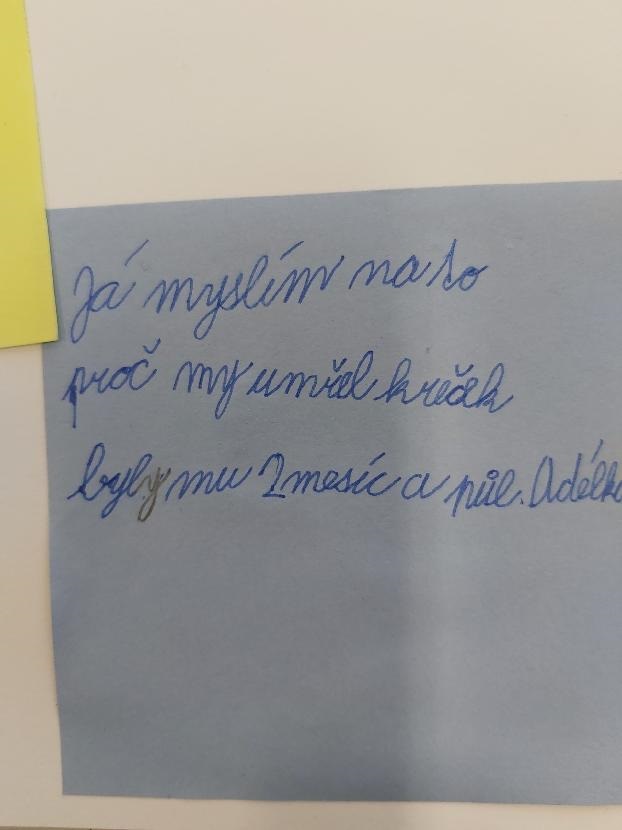 Já myslím na to
proč my umřel křeček
byly mu 2 mesíc a půl. Adélka